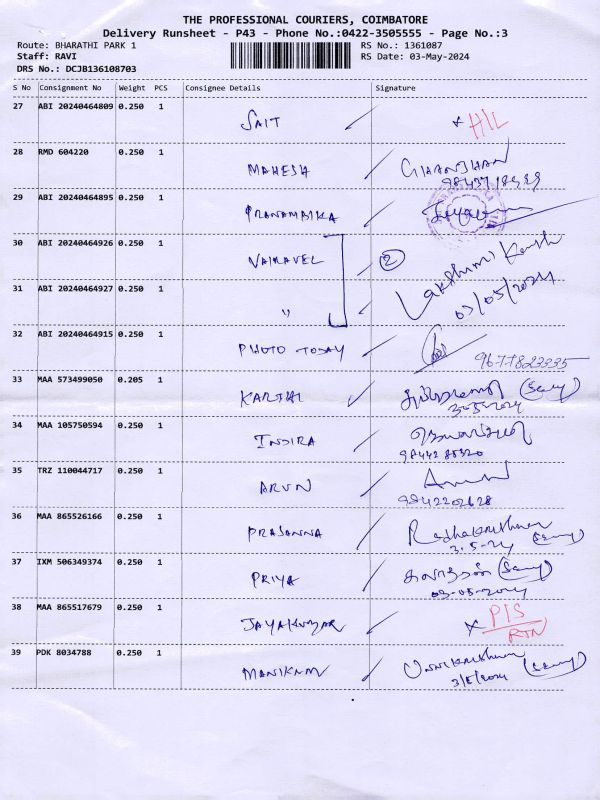 THE PROFESSIONAL COURIERS, COIMBATORE
Delivery Runsheet - P43 - Phone No.:0422-3505555 - Page No.:3
Route: BHARATHI PARK 1 RS No.: 1361087
Staff: RAVI RS Date: 03-May-2024
DRS No.: DCJB136108703
S No Consignment No Weight PCS Consignee Details Signature
27 ABI 20240464809 0.250 1 SAIT × H/L
28 RMD 604220 0.250 1 MAHESH
29 ABI 20240464895 0.250 1 PRANAMBIKA
30 ABI 20240464926 0.250 1 VAIRAVEL 2
31 ABI 20240464927 0.250 1 〃 Lakshmi
03/05/2024
32 ABI 20240464915 0.250 1 PHOTO TODAY 9677823335
33 MAA 573499050 0.205 1 KARTHI
3-5-2024
34 MAA 105750594 0.250 1 INDIRA
35 TRZ 110044717 0.250 1 ARUN
9842202628
36 MAA 865526166 0.250 1 PRASANNA Radhakrishnan
3.5-24
37 IXM 506349374 0.250 1 PRIYA
03-05-2024
38 MAA 865517679 0.250 1 JAYAKUMAR × P/S
RTN
39 PDK 8034788 0.250 1 MANIKAM Unnikrishnan
3/5/2024